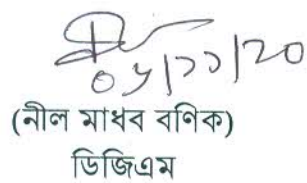 ০১/১১/২০
(নীল মাধব বণিক)
ডিজিএম